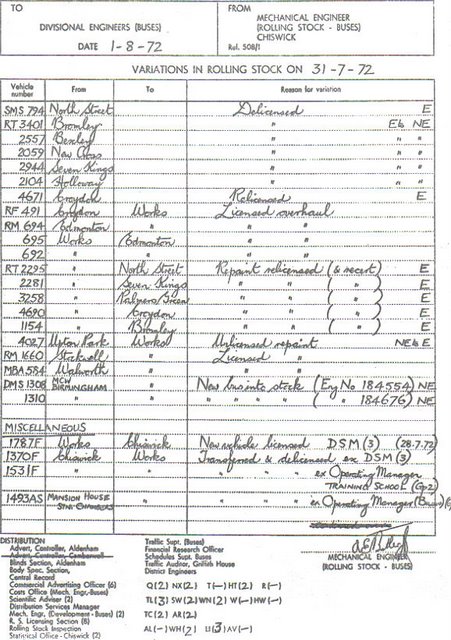 TO FROM
DIVISIONAL ENGINEERS (BUSES) MECHANICAL ENGINEER
(ROLLING STOCK - BUSES)
CHISWICK
DATE 1-8-72 Ref. 508/1
VARIATIONS IN ROLLING STOCK ON 31-7-72
Vehicle number From To Reason for variation
SMS 794 North Street Delicensed E
RT 3401 Bromley " E6 NE
2557 Bexley " " "
2059 New Cross " " "
2944 Seven Kings " " "
2104 Holloway " " "
4671 Croydon Relicensed E
RF 491 Croydon Works Licensed overhaul
RM 694 Edmonton " " "
695 Works Edmonton " "
692 " " " "
RT 2295 " North Street Repaint relicensed (& recert) E
2281 " Seven Kings " " ( " ) E
3258 " Palmers Green " " ( " ) E
4690 " Croydon " " ( " ) E
1154 " Bromley " " ( " ) E
4027 Upton Park Works Unlicensed repaint NE6 E
RM 1660 Stockwell " Licensed "
MBA 584 Walworth " " "
DMS 1308 MCW BIRMINGHAM " New bus into stock (Eng No 184554) NE
1310 " " " " " ( " 184676) NE
MISCELLANEOUS
1787F Works Chiswick New vehicle licensed DSM (3) (28.7.72)
1370F Chiswick Works Transferred & delicensed ex DSM (3)
1531F " " " " ex Operating Manager
TRAINING SCHOOL (Gp2)
1493AS MANSION HOUSE " " " ex Operating Manager (Buses)
MECHANICAL ENGINEER
(ROLLING STOCK - BUSES)
DISTRIBUTION
Advert. Controller, Aldenham
Advert. Controller, Camberwell
Blinds Section, Aldenham
Body Spec. Section,
Central Record
Commercial Advertising Officer (6)
Costs Office (Mech. Engr.-Buses)
Scientific Adviser (2)
Distribution Services Manager
Mech. Engr, (Development - Buses) (2)
R. S. Licensing Section (8)
Rolling Stock Inspection
Statistical Office - Chiswick (2)
Traffic Supt. (Buses)
Financial Research Officer
Schedules Supt. Buses
Traffic Auditor, Griffith House
District Engineers
Q(2) NX(2) T(—) HT(2) R(—)
TL(3) SW(2) WN(2) W(—) HW(—)
TC(2) AR(2)
AL(—) WH(2) U(3) AV(—)